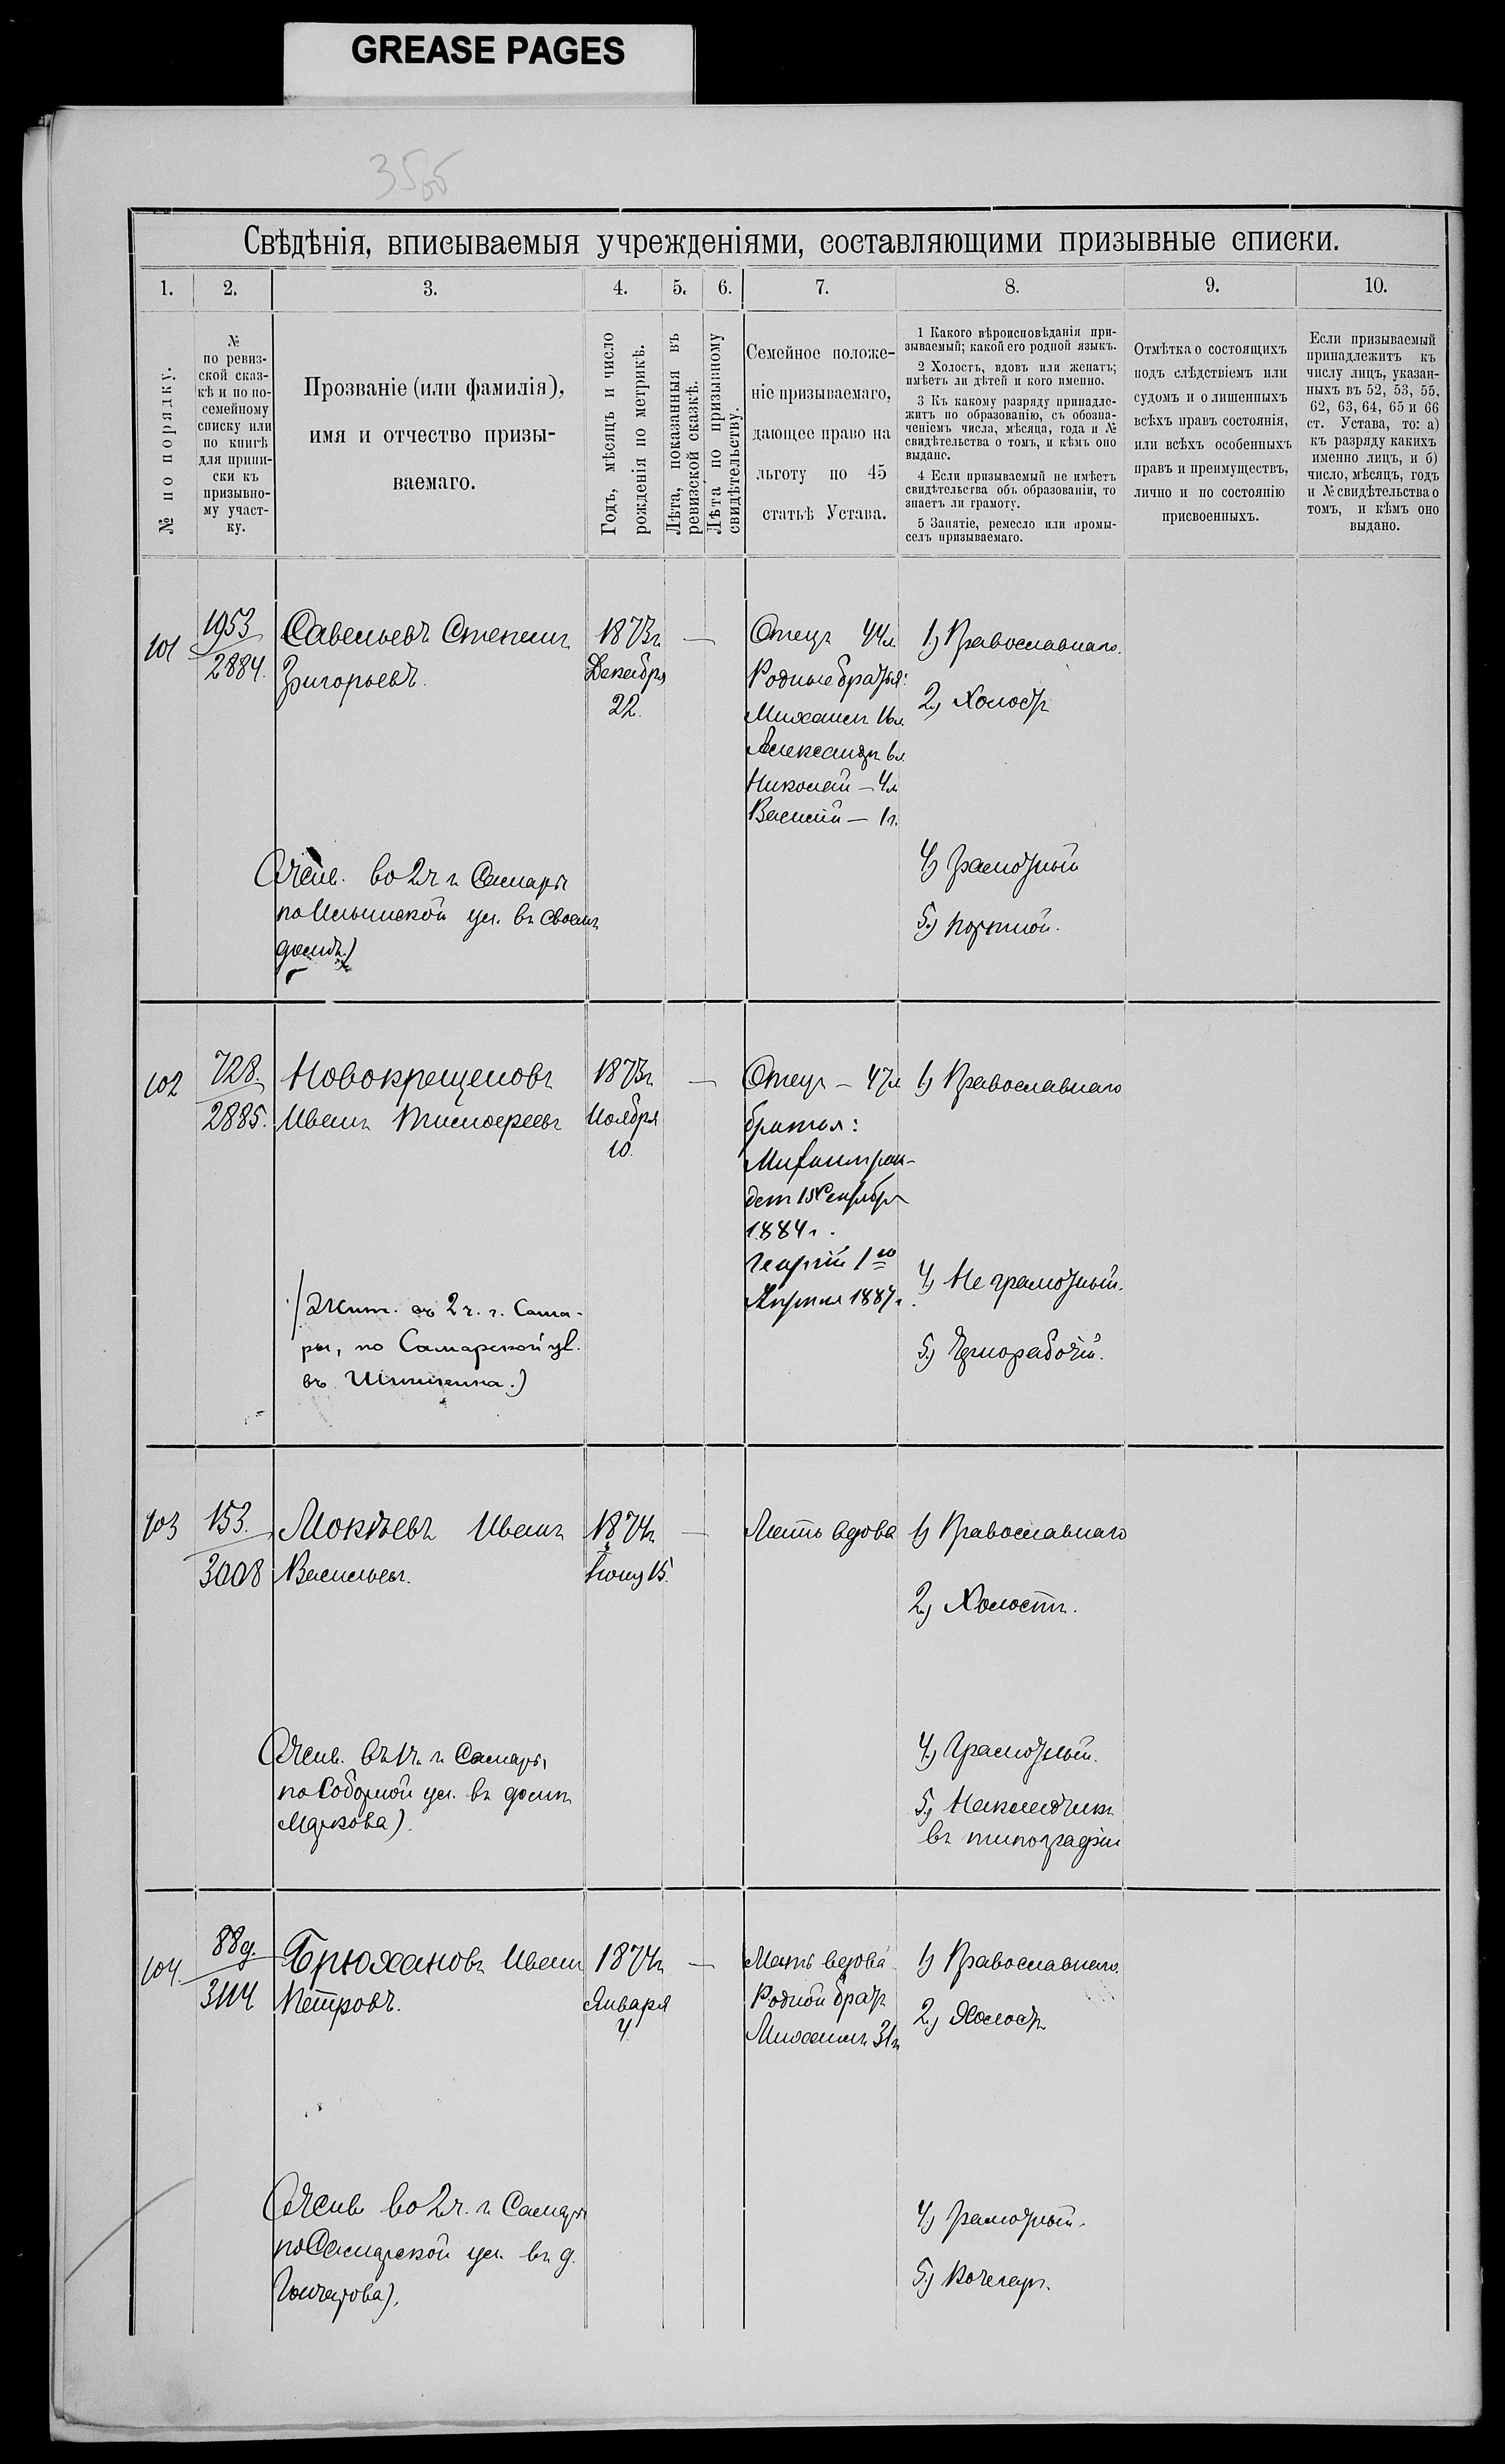 GREASE PAGES
Свѣдѣнія, вписываемыя учрежденіями, составляющими призывные списки.
1. 2. 3. 4. 5. 6. 7. 8. 9. 10.
№ по порядку.
№
по ревиз-
ской сказ-
кѣ и по по-
семейному
списку или
по книгѣ
для припи-
ски къ
призывно-
му участ-
ку.
Прозваніе (или фамилія),
имя и отчество призы-
ваемаго.
Годъ, мѣсяцъ и число
рожденія по метрикѣ.
Лѣта, показанныя въ
ревизской сказкѣ.
Лѣта по призывному
свидѣтельству.
Семейное положе-
ніе призываемаго,
дающее право на
льготу по 45
статьѣ Устава.
1 Какого вѣроисповѣданія при-
зываемый; какой его родной языкъ.
2 Холостъ, вдовъ или женатъ;
имѣетъ ли дѣтей и кого именно.
3 Къ какому разряду принадле-
житъ по образованію, съ обозна-
ченіемъ числа, мѣсяца, года и №
свидѣтельства о томъ, и кѣмъ оно
выдано.
4 Если призываемый не имѣетъ
свидѣтельства объ образованіи, то
знаетъ ли грамоту.
5 Занятіе, ремесло или промы-
селъ призываемаго.
Отмѣтка о состоящихъ
подъ слѣдствіемъ или
судомъ и о лишенныхъ
всѣхъ правъ состоянія,
или всѣхъ особенныхъ
правъ и преимуществъ,
лично и по состоянію
присвоенныхъ.
Если призываемый
принадлежитъ къ
числу лицъ, указан-
ныхъ въ 52, 53, 55,
62, 63, 64, 65 и 66
ст. Устава, то: а)
къ разряду какихъ
именно лицъ, и б)
число, мѣсяцъ, годъ
и № свидѣтельства о
томъ, и кѣмъ оно
выдано.
101
1953
2884.
Савельевъ Степанъ
Григорьевъ.
1873г.
Декабря
22.
—
Отецъ 44л.
Родные братья:
Михаилъ 16л.
Александръ 6л.
Николай — 4л.
Василій — 1г.
1) Православнаго.
2) Холостъ
4) Грамотный
5) Портной.
(Жив. во 2ч. г. Самары
по Ильинской ул. въ своемъ
домѣ.)
102
728.
2885.
Новокрещеновъ
Иванъ Тимофеевъ
1873г.
Ноября
10.
—
Отецъ — 47л.
братья:
дет 15 Сентября
1884г.
Георгій 1го
Апрѣля 1887г.
1) Православнаго
4) Не грамотный.
5) Чернорабочій.
(Жит. во 2 ч. г. Сама-
ры, по Самарской ул.
въ Шишкина.)
103
153.
3008
Мокѣевъ Иванъ
Васильевъ.
1874г.
15.
—
Мать вдова
1) Православнаго
2) Холостъ.
4) Грамотный.
5) Накладчикъ
въ типографіи
(Жив. въ 1ч. г. Самары
по Соборной ул. въ домѣ
Маркова).
104.
889.
3114
Брюхановъ Иванъ
Петровъ.
1874г.
Января
4.
—
Мать вдова
Родной братъ
Михаилъ 31г.
1) Православнаго.
2) Холостъ
4) Грамотный.
5) Кочегаръ.
(Жив. во 2ч. г. Самары
по Самарской ул. въ д.
Гончарова).